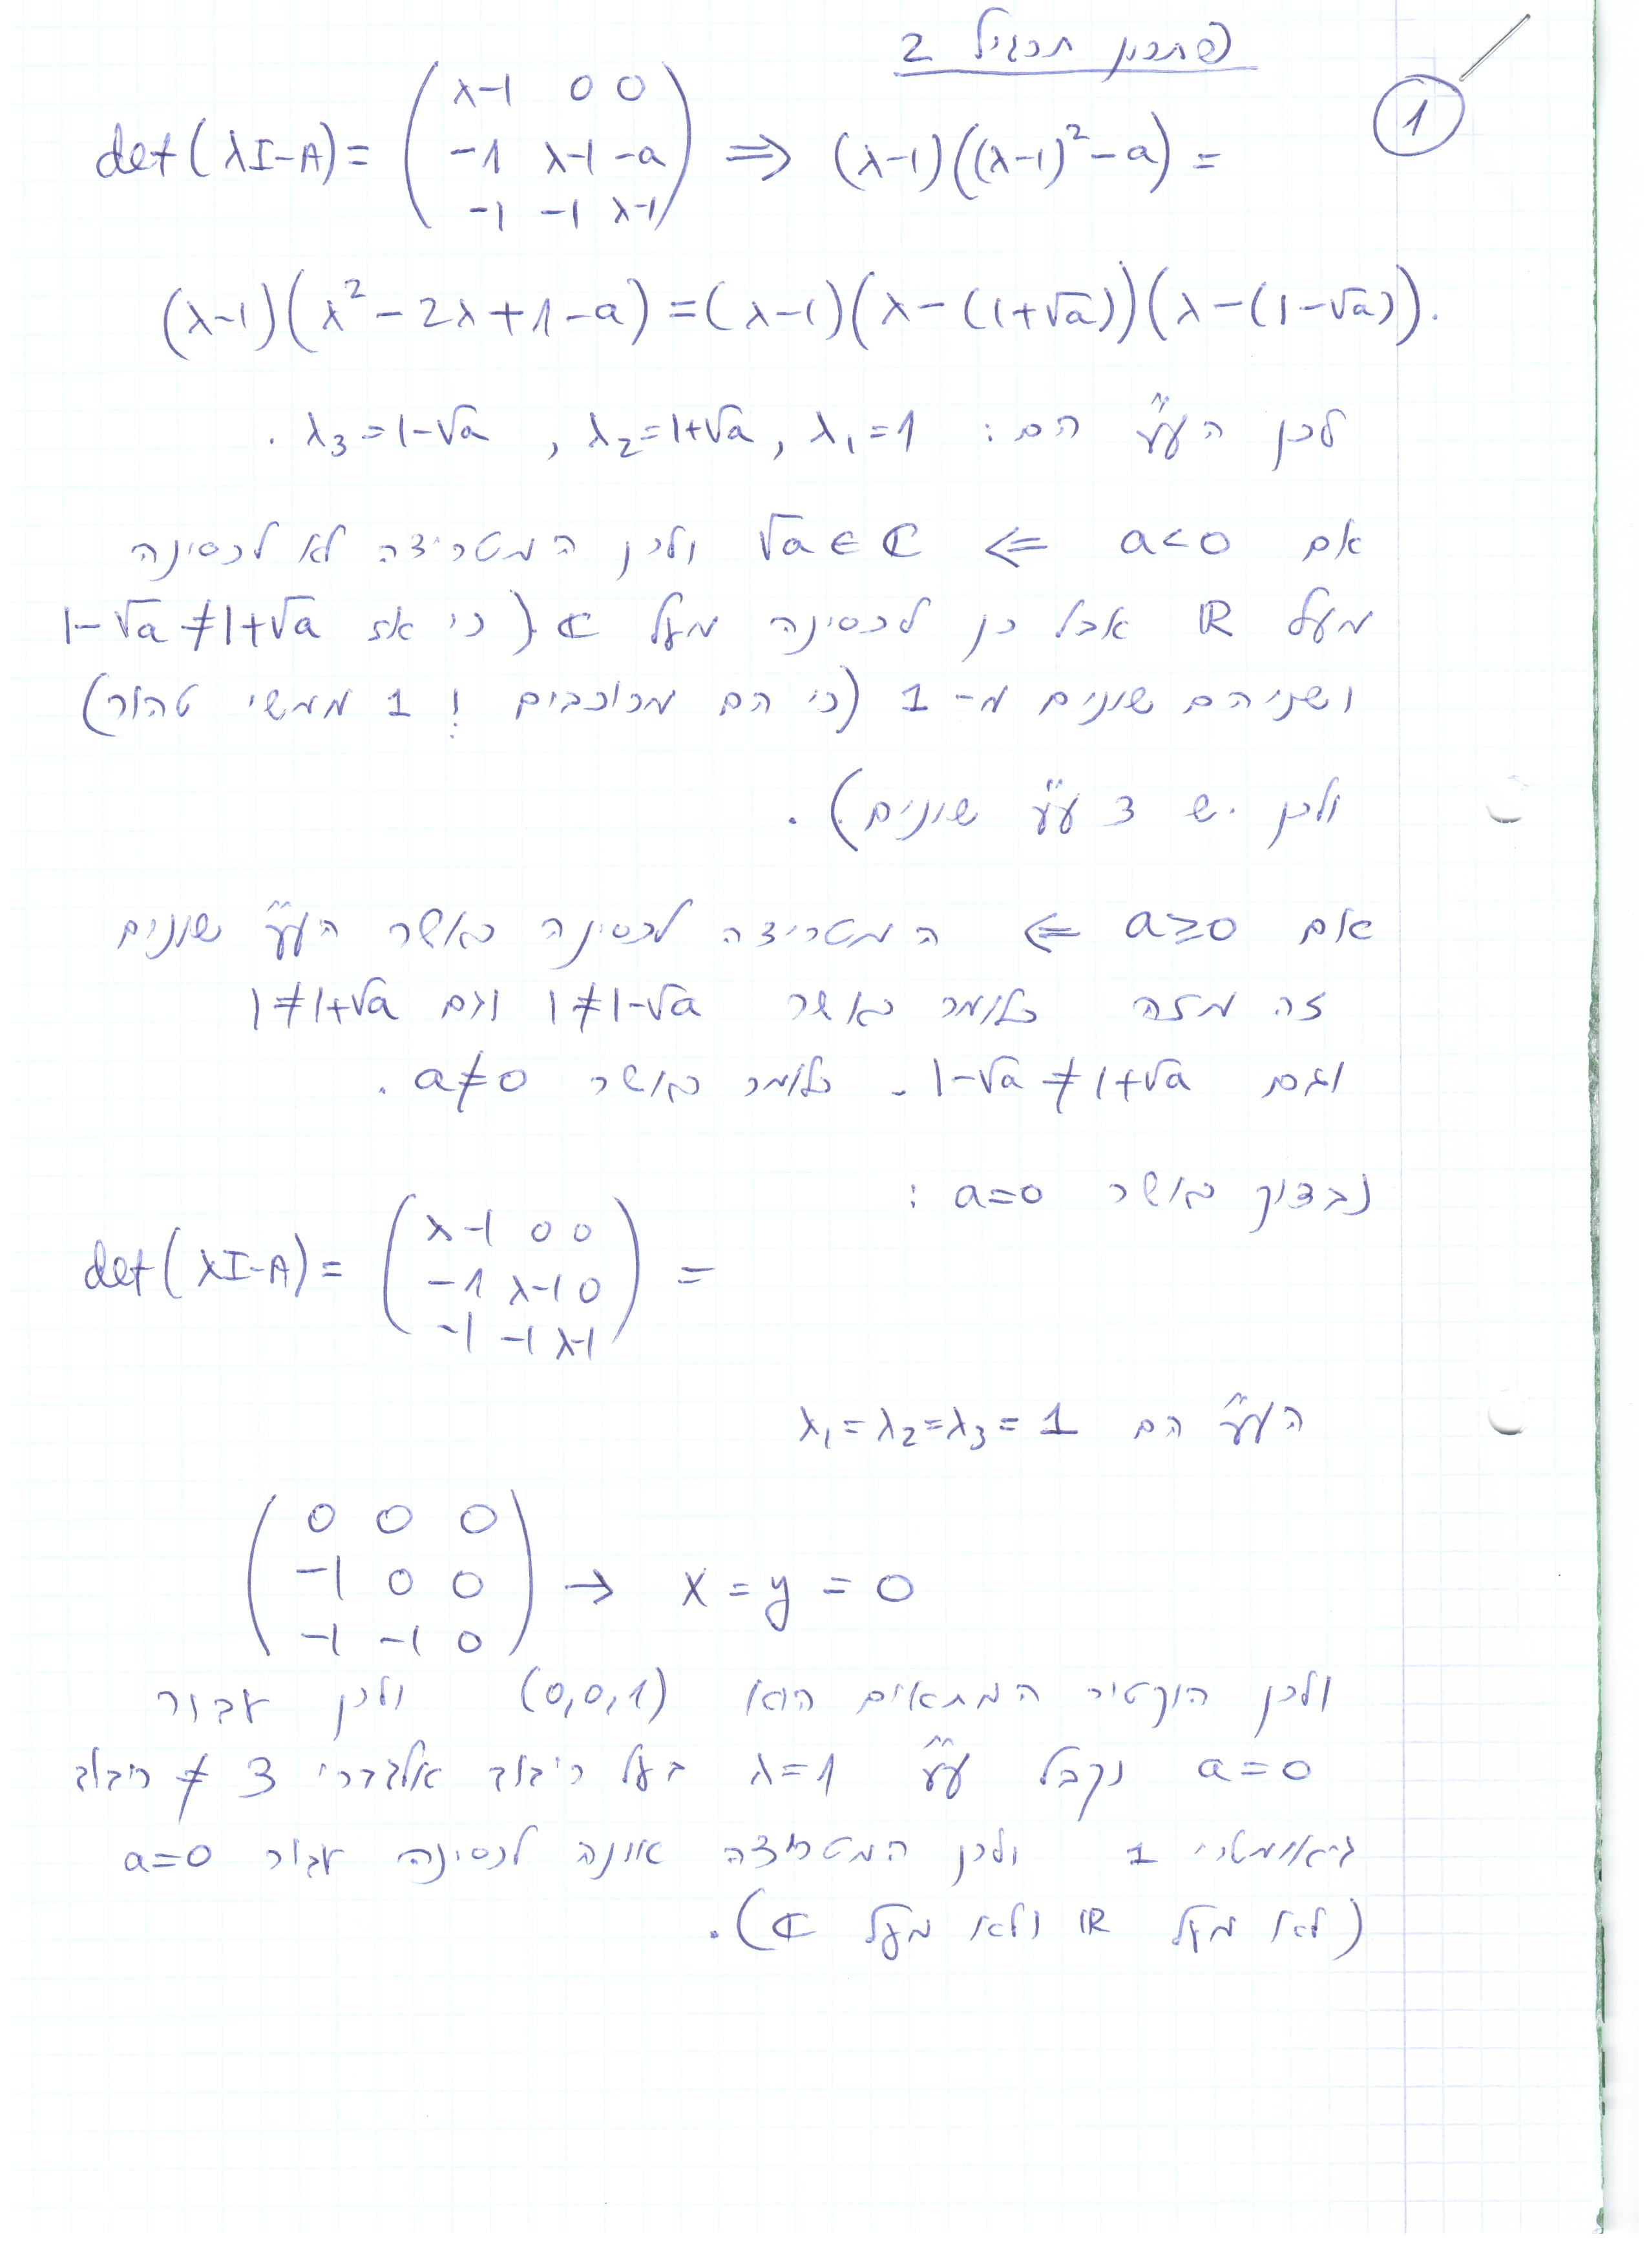 פתרון תרגיל 2
1
det(λI-A) = ( λ-1 0 0
-1 λ-1 -a
-1 -1 λ-1 ) ⇒ (λ-1)((λ-1)²-a) =
(λ-1)(λ²-2λ+1-a) = (λ-1)(λ-(1+√a))(λ-(1-√a)).
לכן הע"ע הם: λ₁=1 , λ₂=1+√a , λ₃=1-√a .
אם a<0 ⇐ √a∈ℂ ולכן המטריצה לא לכסינה
מעל ℝ אבל כן לכסינה מעל ℂ (כי אז 1-√a≠1+√a
ושניהם שונים מ-1 (כי הם מרוכבים ו 1 ממשי טהור)
ולכן יש 3 ע"ע שונים).
אם a≥0 ⇐ המטריצה לכסינה כאשר הע"ע שונים
זה מזה כלומר כאשר 1≠1-√a וגם 1≠1+√a
וגם 1-√a≠1+√a. כלומר כאשר a≠0.
נבדוק כאשר a=0 :
det(λI-A) = ( λ-1 0 0
-1 λ-1 0
-1 -1 λ-1 ) =
הע"ע הם λ₁=λ₂=λ₃=1
( 0 0 0
-1 0 0
-1 -1 0 ) → x=y=0
ולכן הוקטור המתאים הוא (0,0,1) ולכן עבור
a=0 נקבל ע"ע λ=1 בעל ריבוב אלגברי 3 ≠ ריבוב
גיאומטרי 1 ולכן המטריצה אינה לכסינה עבור a=0
(לא מעל ℝ ולא מעל ℂ).